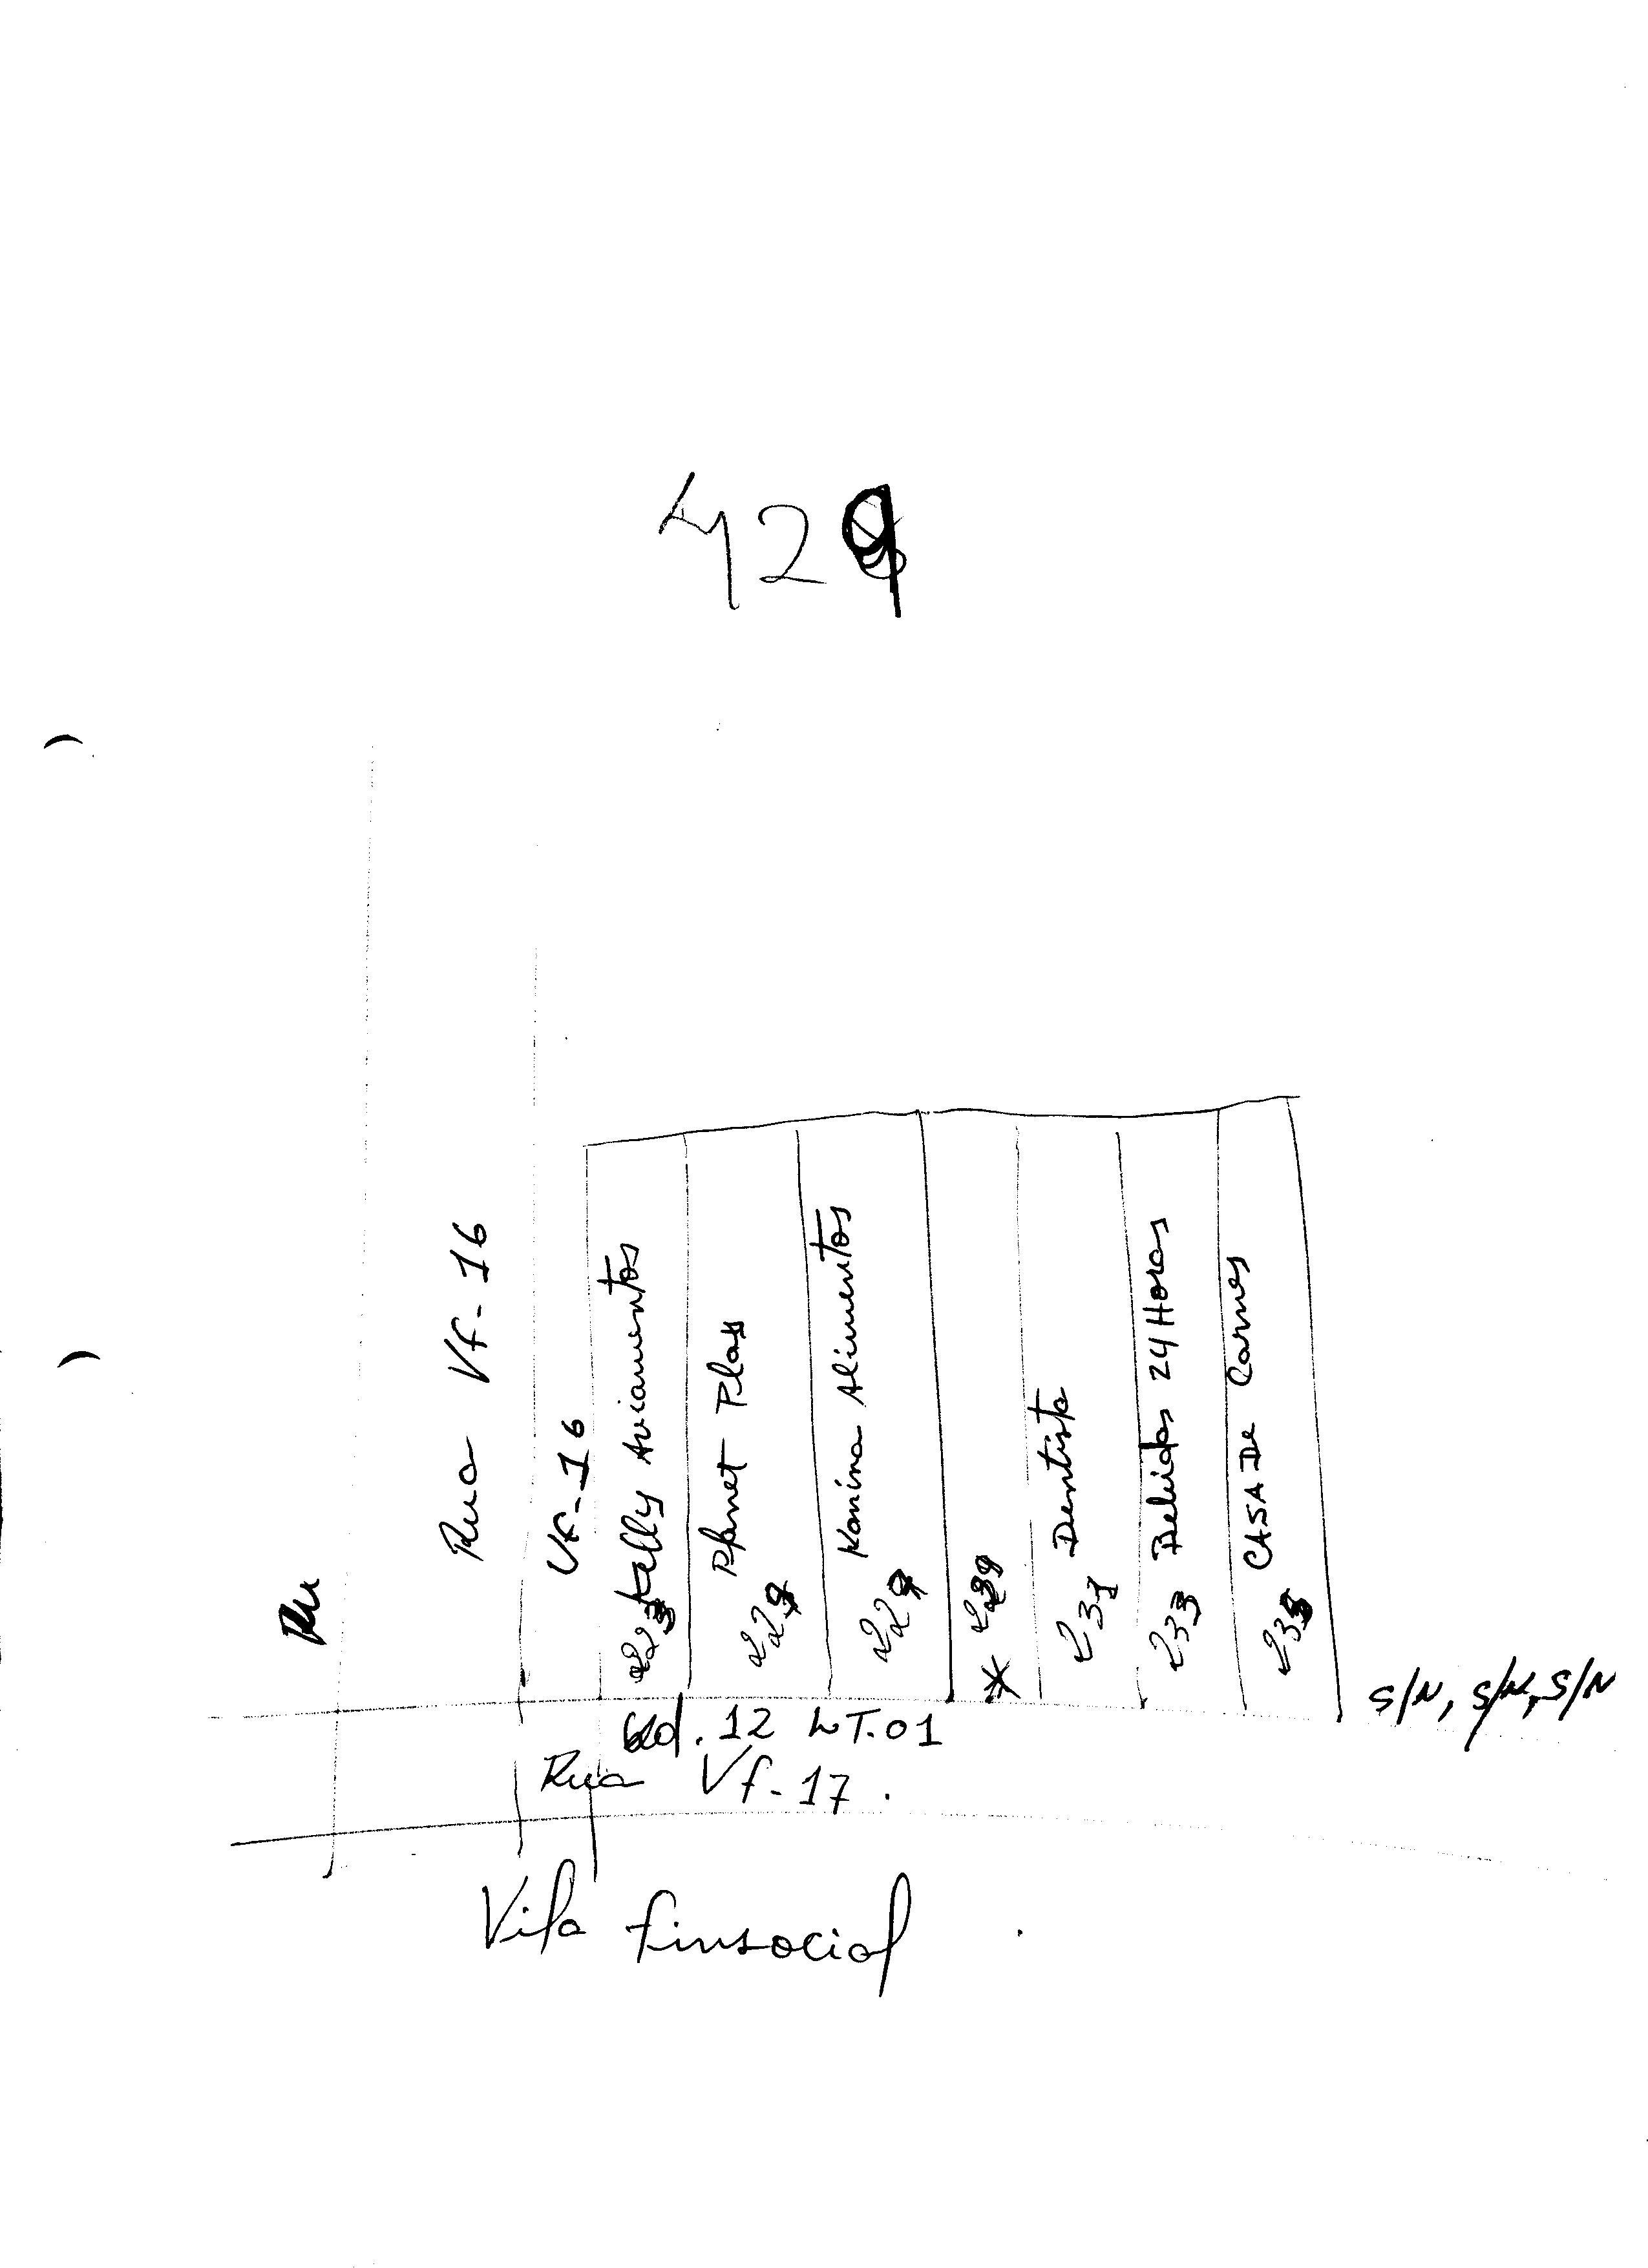 429
Ru
Rua Vf-16
Vf-16
223 Kelly Aviamentos
229 Planet Plass
229 Karina Alimentos
* 229
231 Dentista
233 Bebidas 24 Horas
235 CASA De Carnes
S/N, S/N, S/N
Qd. 12 LT. 01
Rua Vf-17.
Vila finsocial